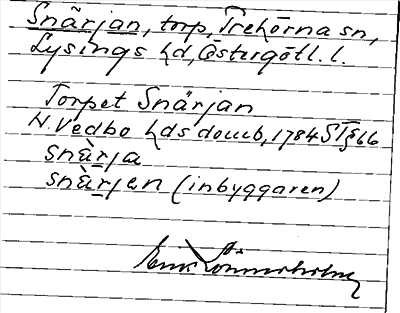 Snärjan, torp, Trehörna sn,
Lysings hd, Östergötl. l.
Torpet Snärjan
N. Vedbo hds domb, 1784 STg 66
snä̀rja
snä̀rjen (inbyggaren)